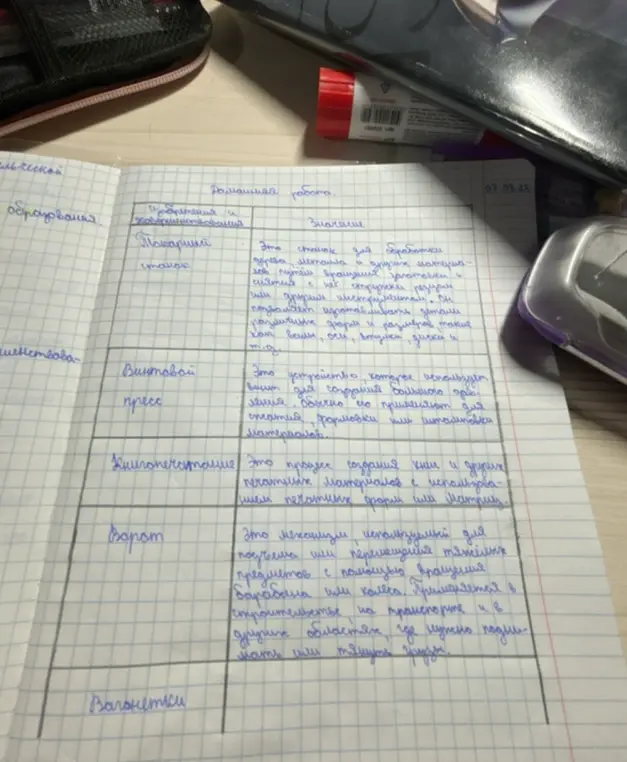 льческой
образования
шенствова-
Домашняя работа.
Изобретения и
совершенствования
Значение
Токарный
станок
Это станок для обработки
дерева, металла и других материа-
лов путём вращения заготовки и
снятия с неё стружки резцом
или другим инструментом. Он
позволяет изготавливать детали
различных форм и размеров, такие
как валы, оси, втулки, диски и
т.д.
Винтовой
пресс
Это устройство, которое использует
винт для создания большого дав-
ления, обычно его применяют для
сжатия, формовки или штамповки
материалов.
Книгопечатание
Это процесс создания книг и других
печатных материалов с использова-
нием печатных форм или матриц.
Ворот
Это механизм, используемый для
подъёма или перемещения тяжёлых
предметов с помощью вращения
барабана или колеса. Применяется в
строительстве, на транспорте и в
других областях, где нужно подни-
мать или тянуть грузы.
Вагонетки